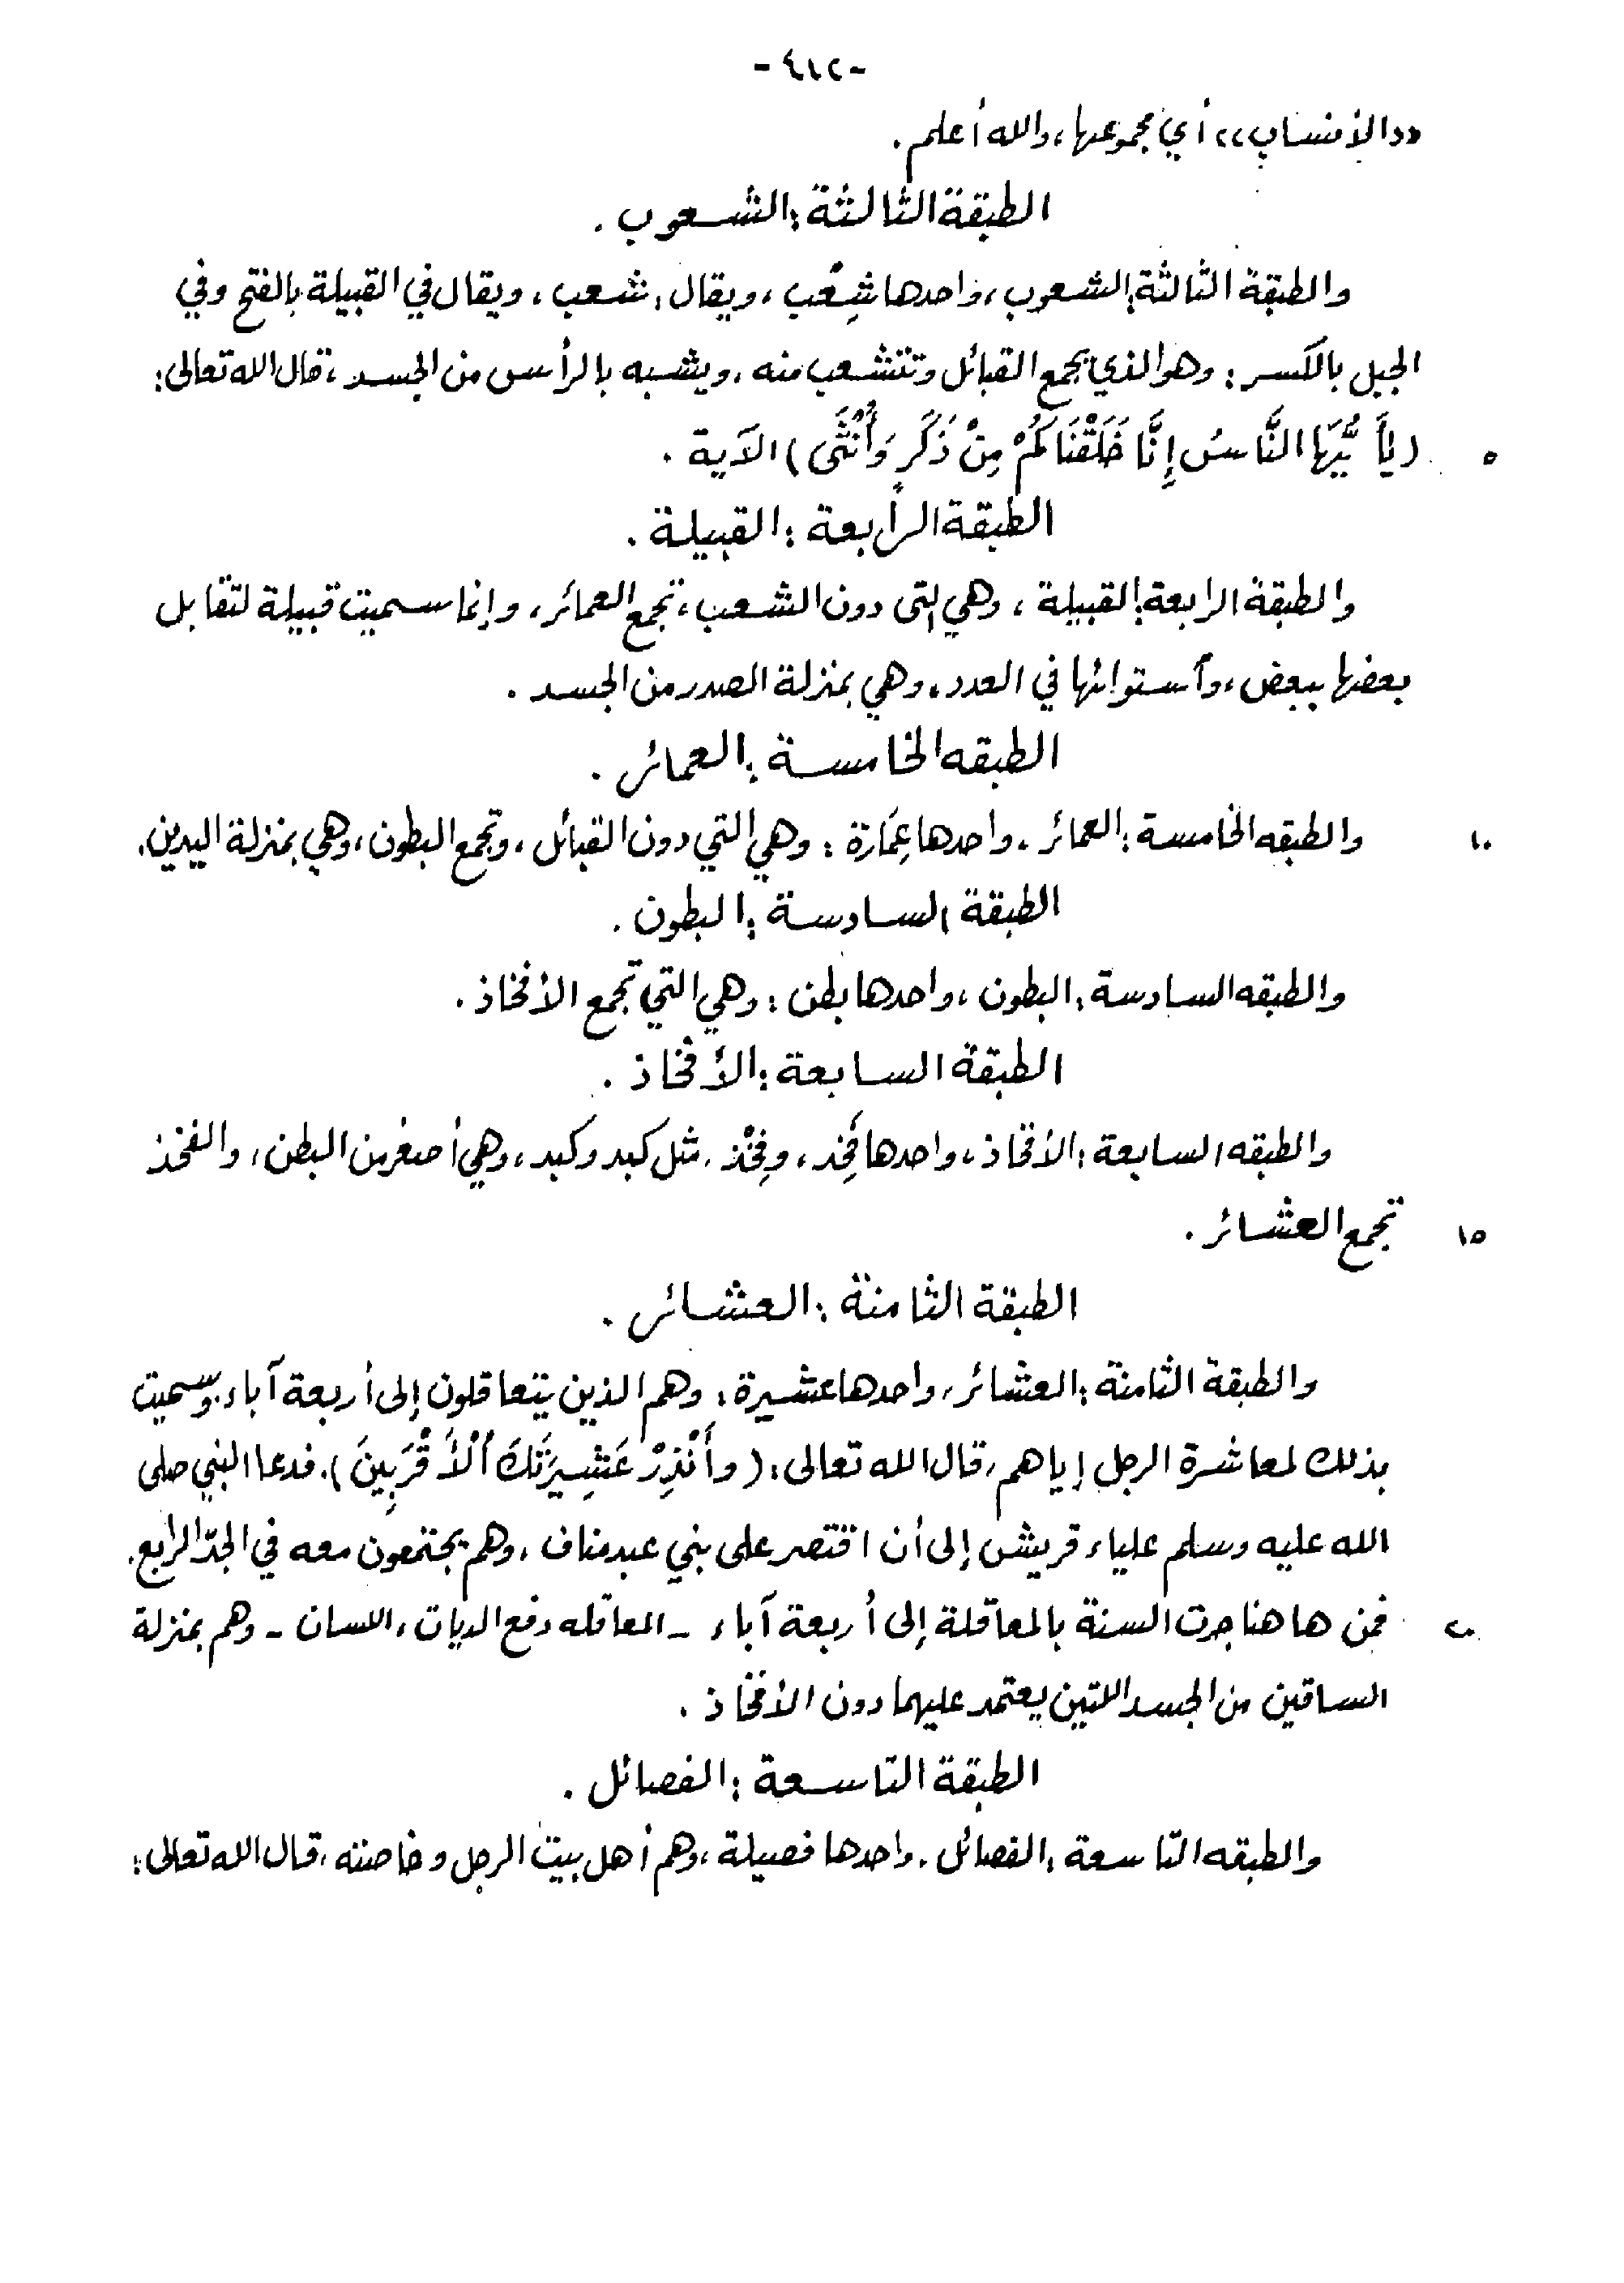 -٤١٢-
«الأنساب» أي مجموعها، والله أعلم.
الطبقة الثالثة: الشعوب.
والطبقة الثالثة: الشعوب، واحدها شِعْب، ويقال: شعب، ويقال في القبيلة بالفتح وفي
الجبل بالكسر: وهو الذي يجمع القبائل وتتشعب منه، ويشبه بالرأس من الجسد، قال الله تعالى:
(يَأَيُّهَا النَّاسُ إِنَّا خَلَقْنَاكُمْ مِنْ ذَكَرٍ وَأُنْثَى) الآية. ٥
الطبقة الرابعة: القبيلة.
والطبقة الرابعة: القبيلة، وهي التى دون الشعب، تجمع العمائر، وإنما سميت قبيلة لتقابل
بعضها ببعض، وٱستوائها في العدد، وهي بمنزلة الصدر من الجسد.
الطبقه الخامسة: العمائر.
والطبقه الخامسة: العمائر، واحدها عِمَارة: وهي التي دون القبائل، وتجمع البطون، وهي بمنزلة اليدين. ١٠
الطبقة السادسة: البطون.
والطبقه السادسة: البطون، واحدها بطن: وهي التي تجمع الأفخاذ.
الطبقة السابعة: الأفخاذ.
والطبقه السابعة: الأفخاذ، واحدها فَخِذ، وفِخْذ، مثل كبد وكبد، وهي أصغر من البطن، والفخذ
تجمع العشائر. ١٥
الطبقة الثامنة: العشائر.
والطبقة الثامنة: العشائر، واحدها عشيرة: وهم الذين يتعاقلون إلى أربعة آباء، وسميت
بذلك لمعاشرة الرجل إياهم، قال الله تعالى: (وأَنْذِرْ عَشِيرَتَكَ ٱلْأَقْرَبِينَ). فدعا النبي صلى
الله عليه وسلم علياء قريش إلى أن اقتصر على بني عبد مناف، وهم يجتمعون معه في الجدّ الرابع.
فمن هاهنا جرت السنة بالمعاقلة إلى أربعة آباء - المعاقله دفع الديات، اللسان - وهم بمنزلة ٢٠
الساقين من الجسد اللتين يعتمد عليهما دون الأفخاذ.
الطبقة التاسعة: الفصائل.
والطبقه التاسعة: الفصائل، واحدها فصيلة، وهم أهل بيت الرجل وخاصته، قال الله تعالى: